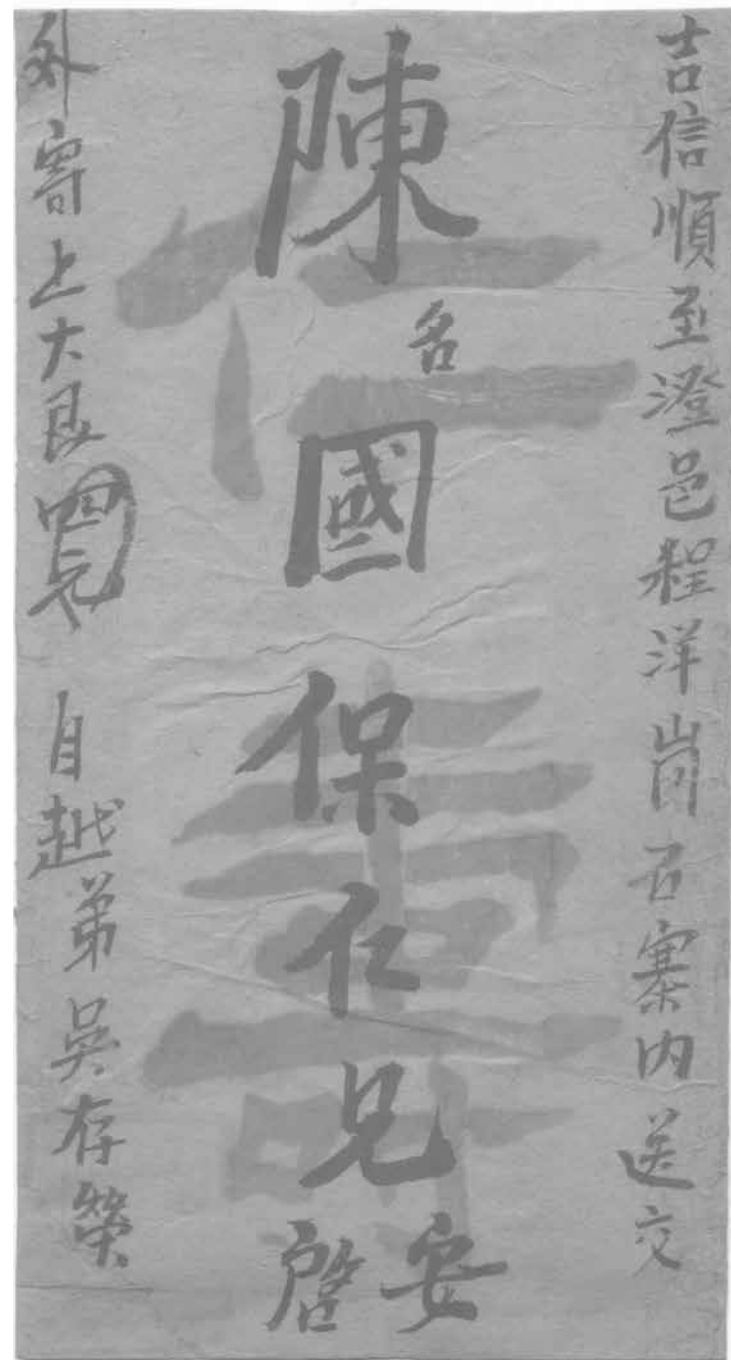 吉信順至澄邑程洋崗石寨内送交
陳名國保仁兄安啓
外寄上大艮四元　自越弟吳存榮
仁壽